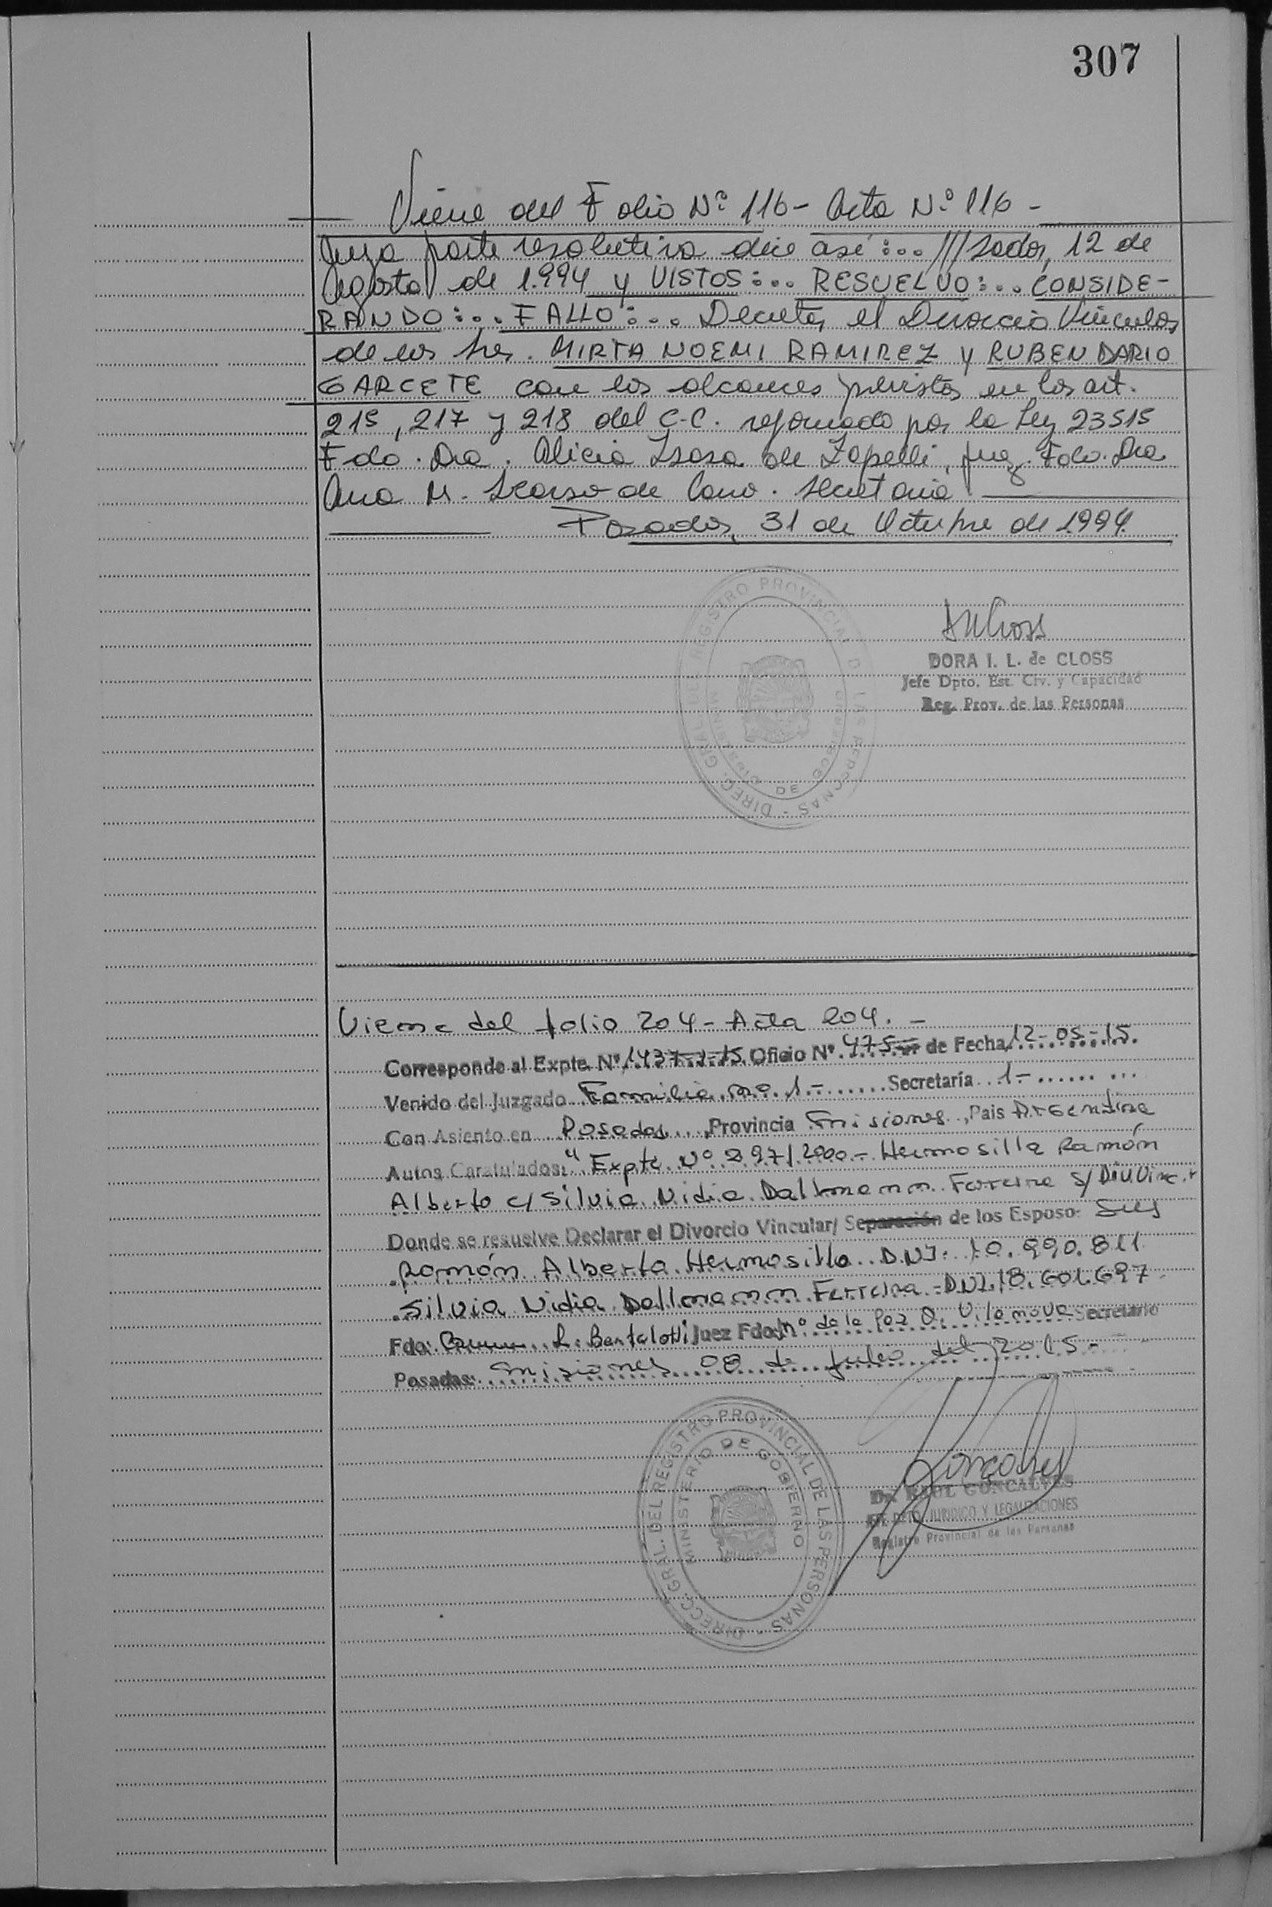 307
Viene del Folio Nº 116 - Acta Nº 116 -
cuya parte resolutiva dice así:... ///sadas, 12 de
Agosto de 1.994 y VISTOS:... RESUELVO:... CONSIDE-
RANDO:... FALLO:... Decretar el Divorcio Vincular
de los Sres. MIRTA NOEMI RAMIREZ y RUBEN DARIO
GARCETE con los alcances previstos en los art.
215, 217 y 218 del C.C. reformado por la Ley 23515
Fdo. Dra. Alicia de Zapelli, Juez. Fdo. Dra
Ana M. de Cano. Secretaria
Posadas, 31 de Octubre de 1994.
DIREC. GRAL. DEL REGISTRO PROVINCIAL DE LAS PERSONAS -
DORA I. L. de CLOSS
Jefe Dpto. Est. Civ. y Capacidad
Reg. Prov. de las Personas
Viene del folio 204 - Acta 204. -
Corresponde al Expte. Nº 1437-J-15 Oficio Nº 475 de Fecha 12-05-15.
Venido del Juzgado Familia no. 1.- Secretaría 1.-
Con Asiento en Posadas, Provincia Misiones, Pais Argentina
Autos Caratulados: "Expte Nº 897/2000.- Hermosilla Ramón
Alberto c/ Silvia Nidia Dallmann Ferreira s/ Div Vinc.
Donde se resuelve Declarar el Divorcio Vincular/ Separación de los Esposo: Sres
Ramón Alberto Hermosilla D.N.I. 10.990.811
Silvia Nidia Dallmann Ferreira - DNI 18.601.697
Fdo: L. Bertolotti Juez Fdo: Mº de la Paz O. Vilanova Secretario
Posadas: Misiones 08 de Julio del 2015.-
DIRECC. GRAL. DEL REGISTRO PROVINCIAL DE LAS PERSONAS -
MINISTERIO DE GOBIERNO
Dr. RAUL GONCALVES
DPTO. JURIDICO Y LEGALIZACIONES
Registro Provincial de las Personas